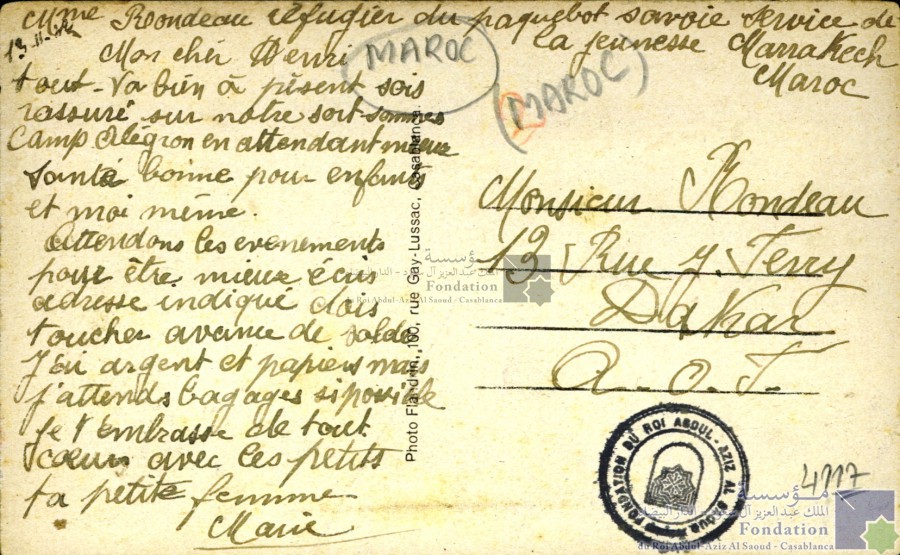 Mme Rondeau réfugier du paquebot savoie Service de
la jeunesse Marrakech
Maroc
13-11-42
Mon cher Henri
MAROC
(MAROC)
2
tout-va bien à présent sois
rassuré sur notre sort-sommes
Camp Alégron en attendant mieux
santé bonne pour enfants
et moi même.
Attendons les evenements
pour être mieux écris
adresse indiqué dois
toucher avance de solde
J'ai argent et papiers mais
j'attends bagages si possible
Je t'embrasse de tout
coeur avec les petits
ta petite femme
Marie
Photo Flandrin, 100, rue Gay-Lussac, Casablanca.
Monsieur Rondeau
13 Rue J. Ferry
Dakar
A.O.F.
مؤسسة
الملك عبد العزيز آل سعود - الدار البيضاء
Fondation
du Roi Abdul-Aziz Al Saoud - Casablanca
FONDATION DU ROI ABDUL-AZIZ AL SAOUD
4117
مؤسسة
الملك عبد العزيز آل سعود - الدار البيضاء
Fondation
du Roi Abdul-Aziz Al Saoud - Casablanca